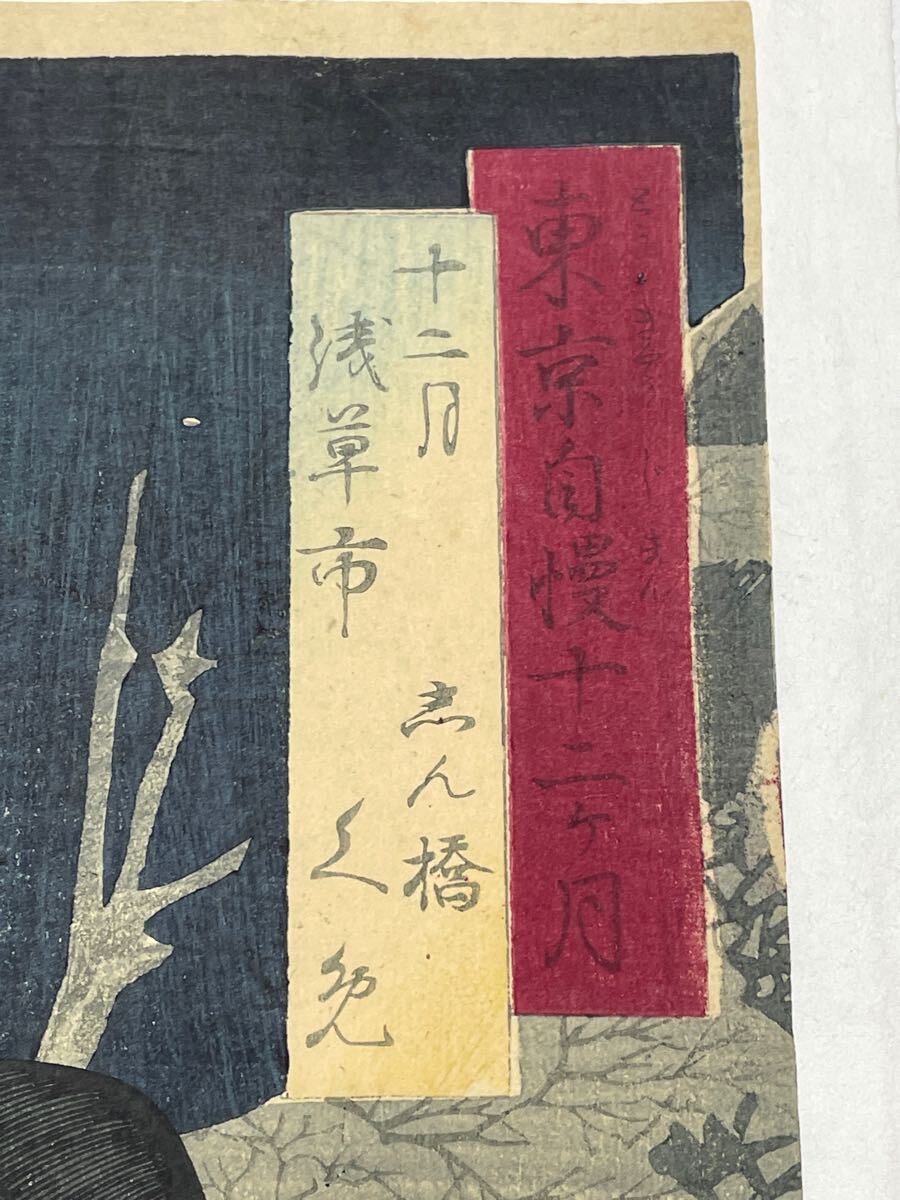 東京自慢十二ヶ月
とうきやうじまん
十二月
浅草市
志ん橋
くめ